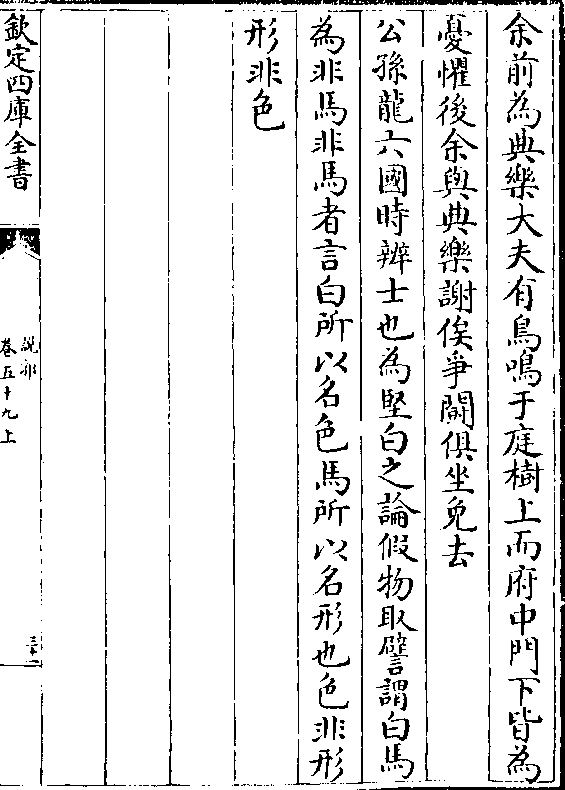 余前為典樂大夫有鳥鳴于庭樹上而府中門下皆為
憂懼後余與典樂謝俟爭鬭俱坐免去
公孫龍六國時辨士也為堅白之論假物取譬謂白馬
為非馬非馬者言白所以名色馬所以名形也色非形
形非色
欽定四庫全書
說郛
卷五十九上